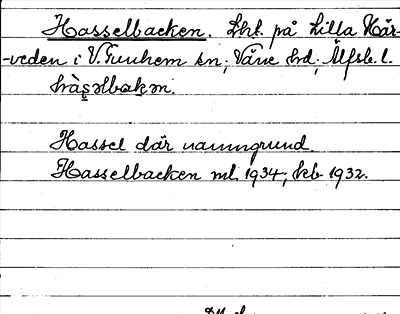 Hasselbacken. Lht. på Lilla Här-
-veden i V. Tunhem sn; Väne hd; Älfsb. l.
Hassel där namngrund.
Hasselbacken ml. 1934; kb 1932.